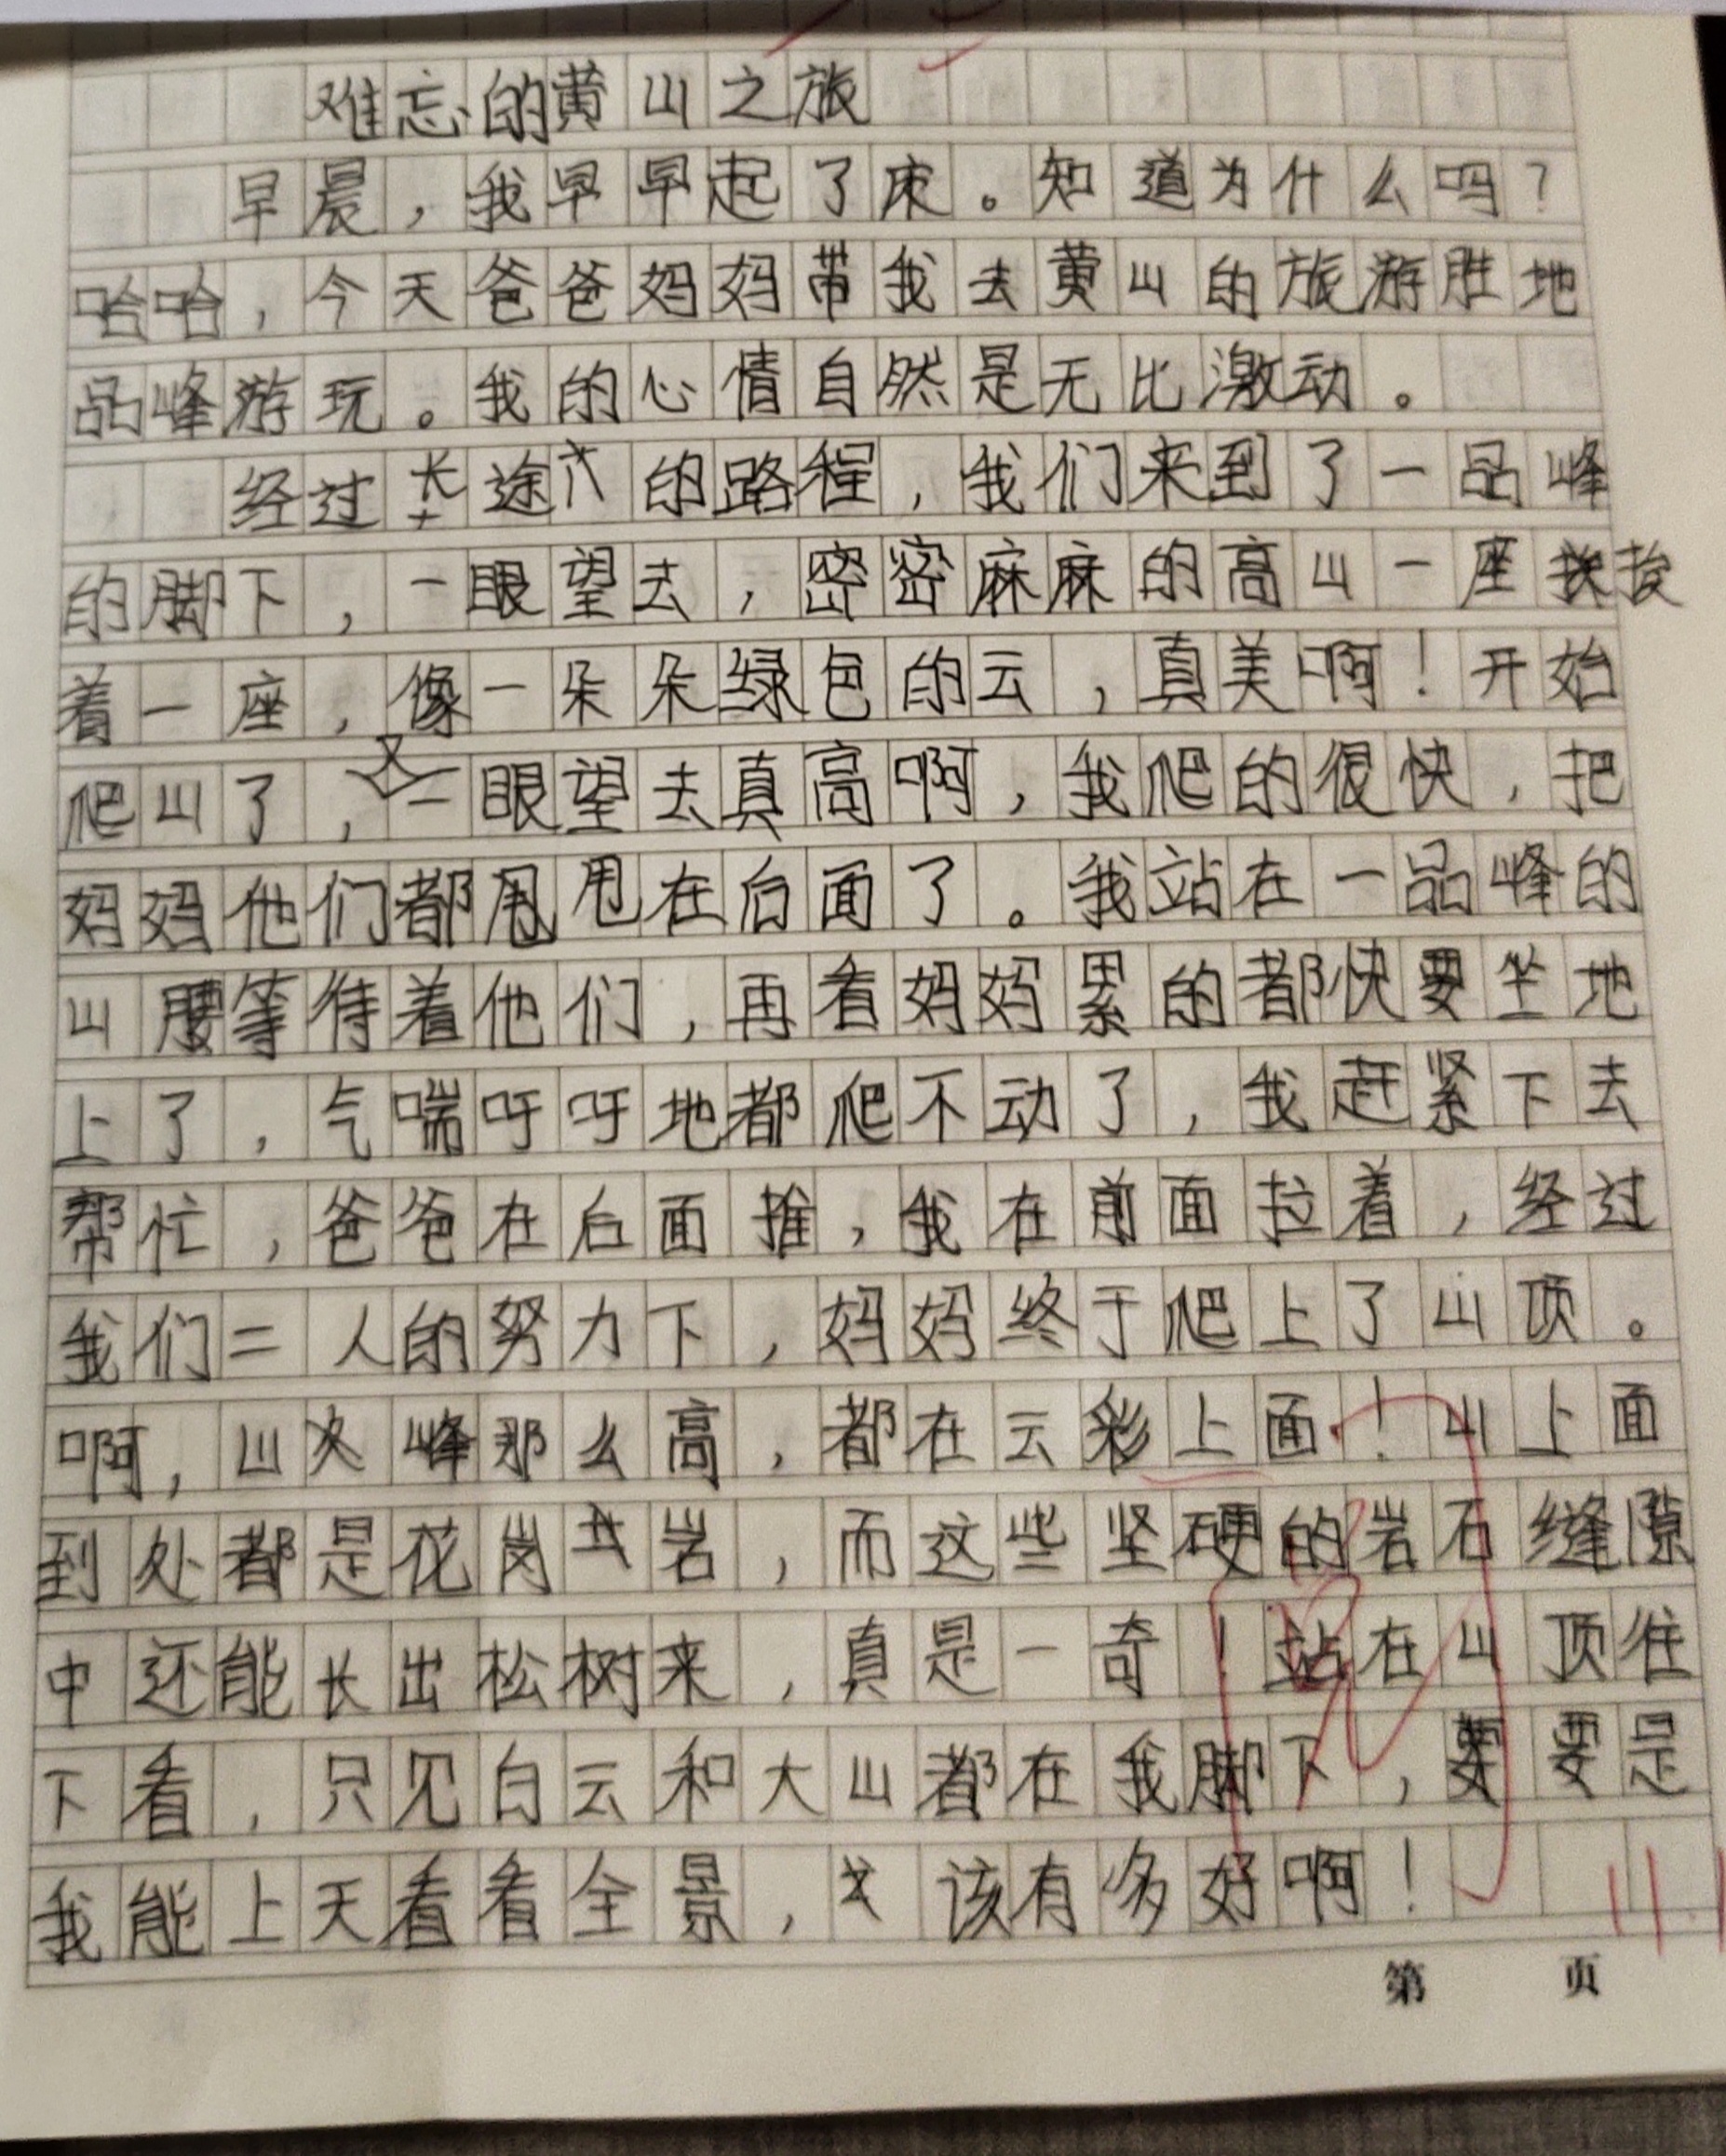 难忘的黄山之旅
早晨，我早早起了床。知道为什么吗？
哈哈，今天爸爸妈妈带我去黄山的旅游胜地
品峰游玩。我的心情自然是无比激动。
经过长途的路程，我们来到了一品峰
的脚下，一眼望去，密密麻麻的高山一座挨
着一座，像一朵朵绿色的云，真美啊！开始
爬山了，又一眼望去真高啊，我爬的很快，把
妈妈他们都甩甩在后面了。我站在一品峰的
山腰等待着他们，再看妈妈累的都快要坐地
上了，气喘吁吁地都爬不动了，我赶紧下去
帮忙，爸爸在后面推，我在前面拉着，经过
我们二人的努力下，妈妈终于爬上了山顶。
啊，山峰那么高，都在云彩上面！山上面
到处都是花岗岩，而这些坚硬的岩石缝隙
中还能长出松树来，真是一奇！站在山顶往
下看，只见白云和大山都在我脚下，要是
我能上天看看全景，该有多好啊！
第 页